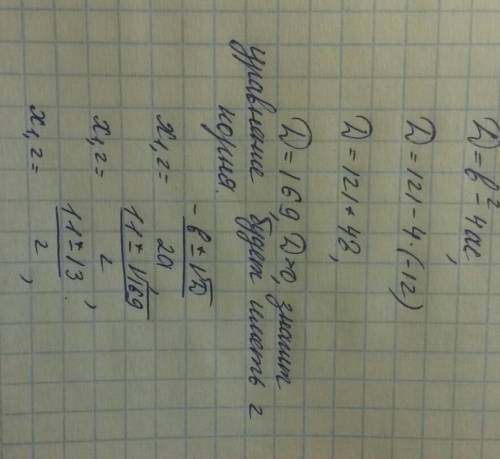 D = b² - 4ac,
D = 121 - 4·(-12)
D = 121 + 48,
D = 169, D > 0, значит
уравнение будет иметь 2
корня.
x₁,₂ = (-b ± √D) / 2a
x₁,₂ = (11 ± √169) / 2,
x₁,₂ = (11 ± 13) / 2,